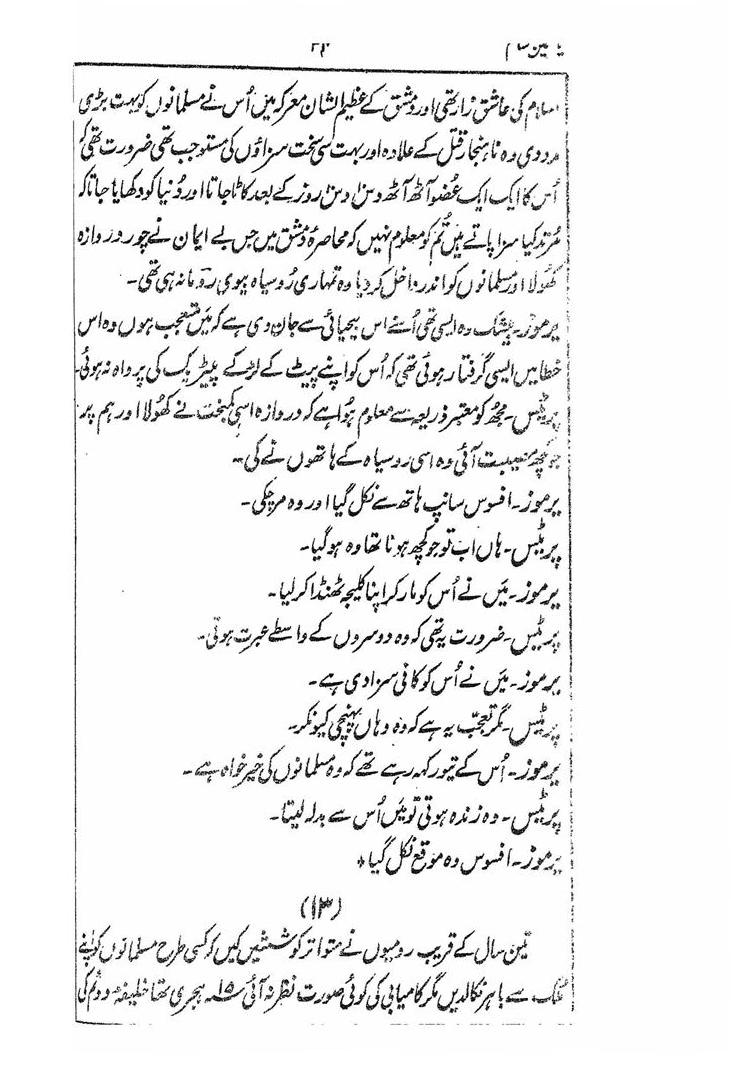 یاسمین شام ۴۴
اسلام کی عاشق زار تھی اور دمشق کے عظیم الشان معرکہ میں اُس نے مسلمانوں کو بہت بڑی
مدد دی وہ ناہنجار قتل کے علاوہ اور بہت سی سخت سزاؤں کی مستوجب تھی ضرورت تھی کہ
اُس کا ایک ایک عُضو آٹھ آٹھ دس دس روز کے بعد کاٹا جاتا اور دُنیا کو دکھایا جاتا کہ
مُرتد کیا سزا پاتے ہیں تُم کو معلوم نہیں کہ محاصرۂ دمشق میں جس بے ایمان نے چور دروازہ
کھُولا اور مسلمانوں کو اندر داخل کر دیا وہ تمہاری رُوسیاہ بیوی رومانہ ہی تھی۔
پرموز۔ بیشک وہ ایسی تھی اُسنے اس بیحیائی سے جان دی ہے کہ میں متعجب ہوں وہ اس
خطا میں ایسی گرفتار ہوئی تھی کہ اُس کو اپنے پیٹ کے لڑکے پیٹرک کی پرواہ نہ ہوئی۔
پرٹیس۔ مجھ کو معتبر ذریعہ سے معلوم ہوا ہے کہ دروازہ اسی کمبخت نے کھُولا اور ہم پر
جو کچھ مصیبت آئی وہ اسی روسیاہ کے ہاتھوں نے کی۔
پرموز۔ افسوس سانپ ہاتھ سے نکل گیا اور وہ مر چکی۔
پرٹیس۔ ہاں اب تو جو کچھ ہونا تھا وہ ہو گیا۔
پرموز۔ میَں نے اُس کو مار کر اپنا کلیجہ ٹھنڈا کر لیا۔
پرٹیس۔ ضرورت یہ تھی کہ وہ دوسروں کے واسطے عبرت ہوتی۔
پرموز۔ میَں نے اُس کو کافی سزا دی ہے۔
پرٹیس۔ مگر تعجّب یہ ہے کہ وہ وہاں پہنچی کیونکر۔
پرموز۔ اُس کے تیور کہہ رہے تھے کہ وہ مسلمانوں کی خیر خواہ ہے۔
پرٹیس۔ وہ زندہ ہوتی تو میَں اُس سے بدلہ لیتا۔
پرموز۔ افسوس وہ موقع نکل گیا٭
(۱۳)
تین سال کے قریب رومیوں نے متواتر کوششیں کیں کہ کسی طرح مسلمانوں کو اپنے
ملک سے باہر نکالدیں مگر کامیابی کی کوئی صورت نظر نہ آئی ۱۵؁ ہجری تھا خلیفہ دوئم کی